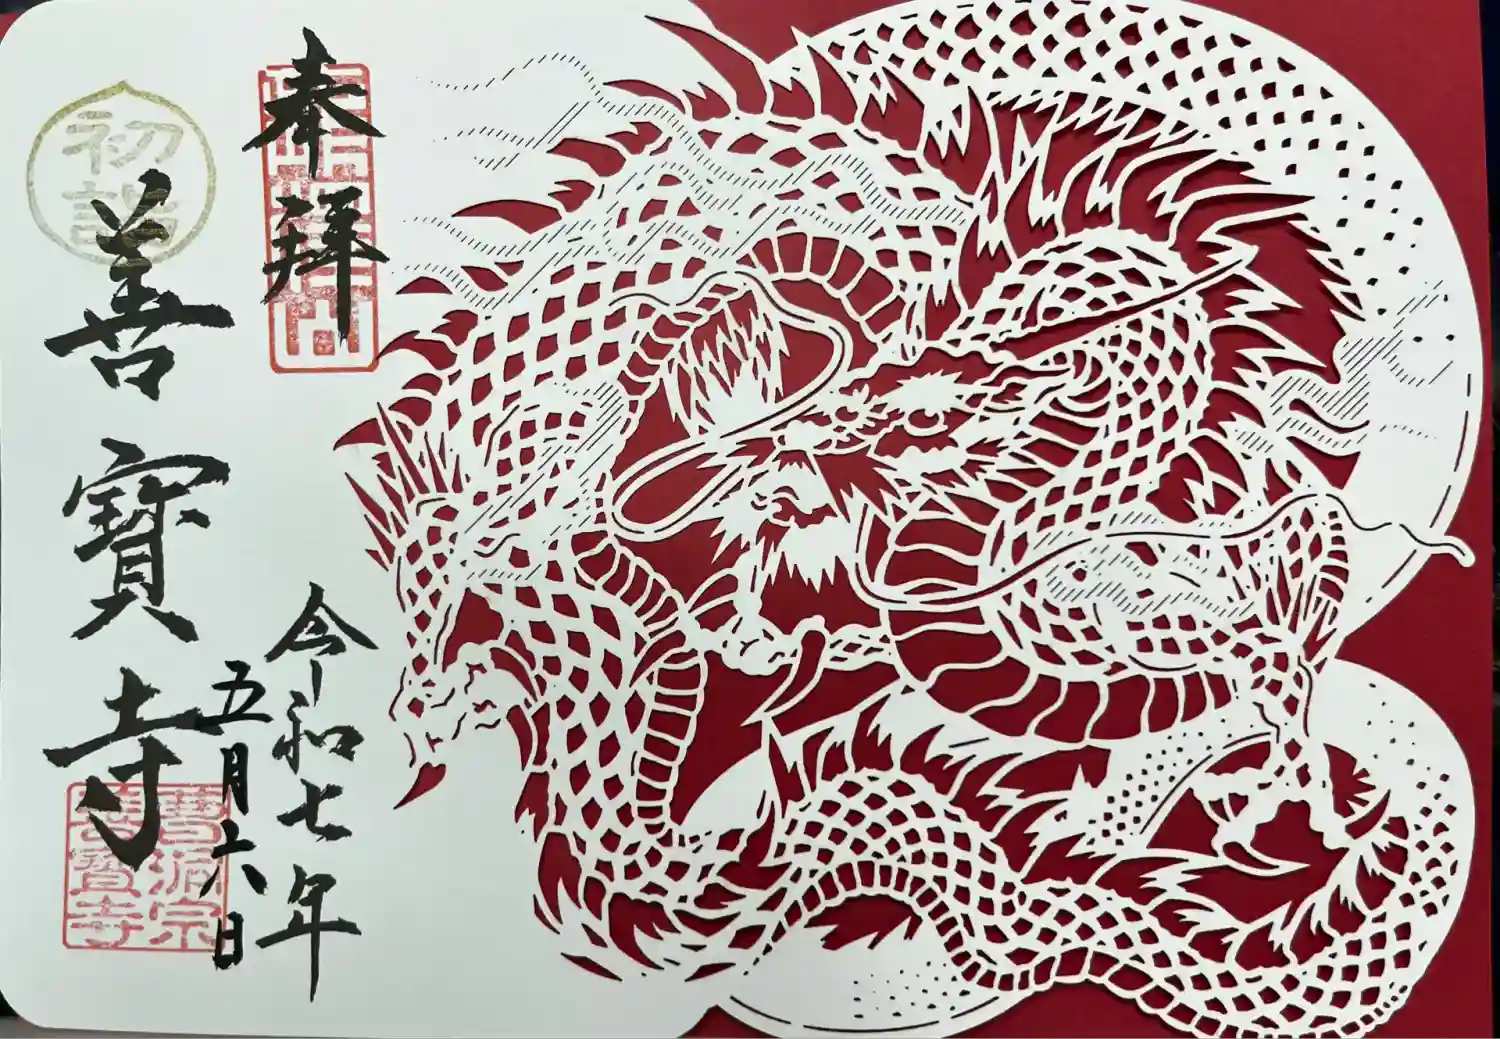 奉拜
令和七年
五月六日
初詣
善寳寺
曹洞宗
善寳寺